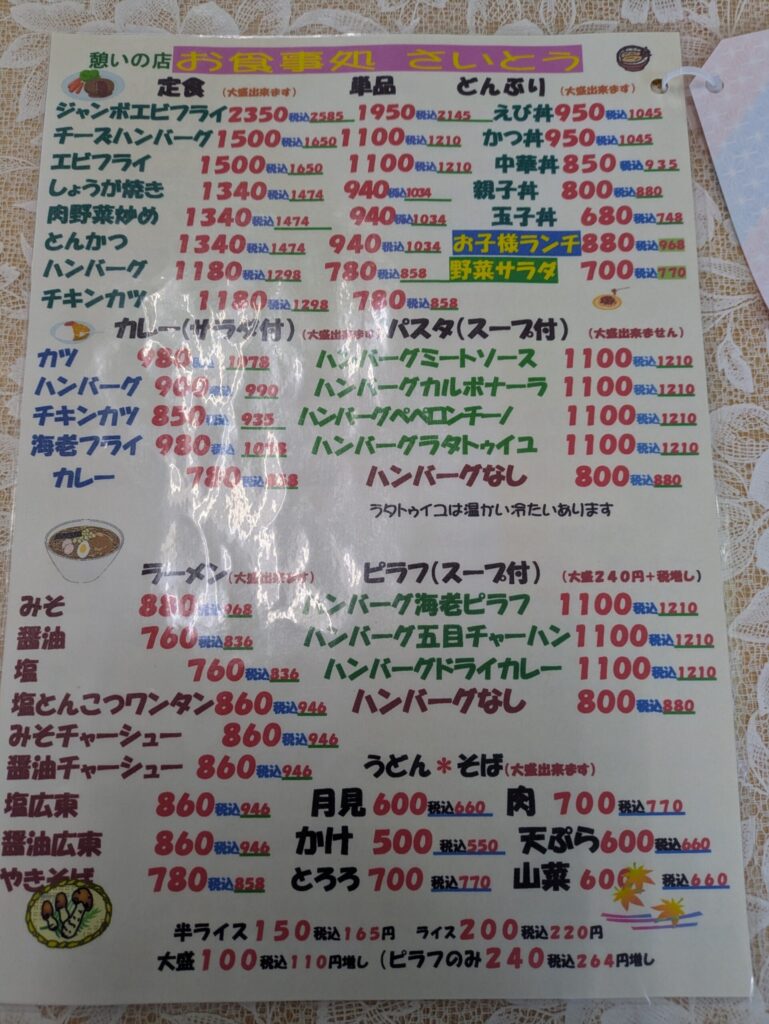 憩いの店 お食事処 さいとう
定食 (大盛出来ます) 単品 どんぶり (大盛出来ます)
ジャンボエビフライ 2350税込2585 1950税込2145 えび丼 950税込1045
チーズハンバーグ 1500税込1650 1100税込1210 かつ丼 950税込1045
エビフライ 1500税込1650 1100税込1210 中華丼 850税込935
しょうが焼き 1340税込1474 940税込1034 親子丼 800税込880
肉野菜炒め 1340税込1474 940税込1034 玉子丼 680税込748
とんかつ 1340税込1474 940税込1034 お子様ランチ 880税込968
ハンバーグ 1180税込1298 780税込858 野菜サラダ 700税込770
チキンカツ 1180税込1298 780税込858
カレー(サラダ付) (大盛出来ます) パスタ(スープ付) (大盛出来ません)
カツ 980税込1078 ハンバーグミートソース 1100税込1210
ハンバーグ 900税込990 ハンバーグカルボナーラ 1100税込1210
チキンカツ 850税込935 ハンバーグペペロンチーノ 1100税込1210
海老フライ 980税込1078 ハンバーグラタトゥイユ 1100税込1210
カレー 780税込858 ハンバーグなし 800税込880
ラタトゥイユは温かい冷たいあります
ラーメン(大盛出来ます) ピラフ(スープ付) (大盛240円+税増し)
みそ 880税込968 ハンバーグ海老ピラフ 1100税込1210
醤油 760税込836 ハンバーグ五目チャーハン 1100税込1210
塩 760税込836 ハンバーグドライカレー 1100税込1210
塩とんこつワンタン 860税込946 ハンバーグなし 800税込880
みそチャーシュー 860税込946
醤油チャーシュー 860税込946 うどん*そば(大盛出来ます)
塩広東 860税込946 月見 600税込660 肉 700税込770
醤油広東 860税込946 かけ 500税込550 天ぷら 600税込660
やきそば 780税込858 とろろ 700税込770 山菜 600税込660
半ライス 150税込165円 ライス 200税込220円
大盛 100税込110円増し (ピラフのみ 240税込264円増し